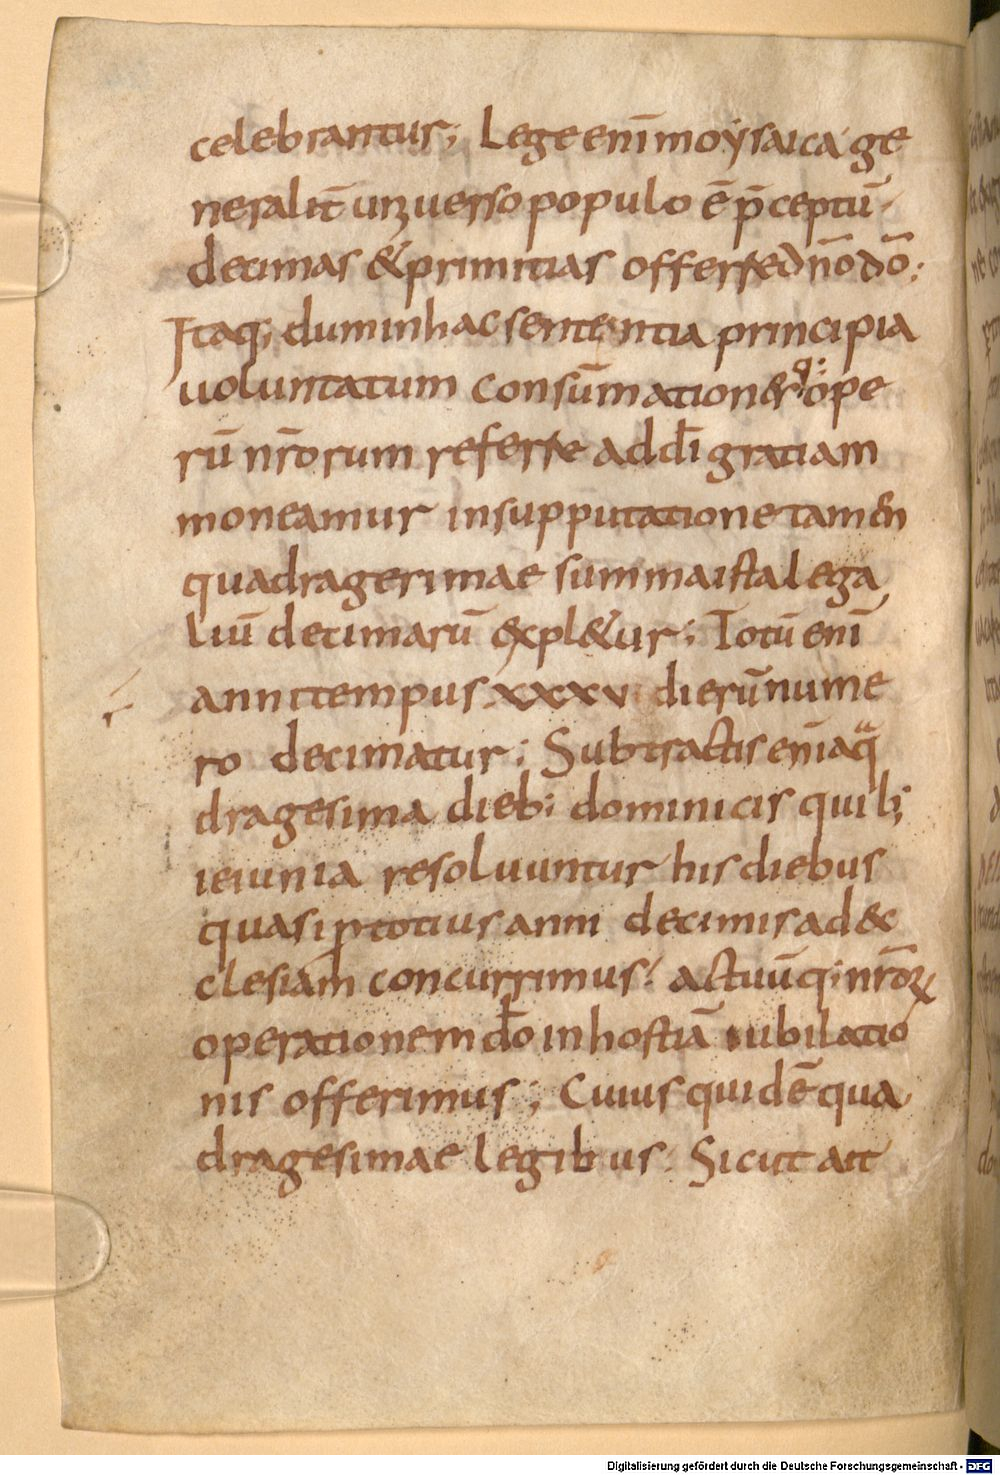 celebrantur; Lege enī moẏsaica ge
neralit̄ uniuerso populo ē p̄ceptū.
decimas &primitias offerre dn̄o dō;
Itaq; dum in hac sententia principia
uoluntatum consūmationesq; ope
rū nr̄orum referre ad dī gratiam
moneamur in supputatione tamen
quadragesimae summa ista lega
liū decimarū expl&ur; Totū enī
anni tempus xxxv dierū nume
ro decimatur; Subtractis enī a qᷓ
dragesima dieb; dominicis quib;
ieiunia resoluuntur his diebus
quasi ꝓ totius anni decimis ad &c
clesiam concurrimus; actuūq; nr̄oꝝ
operationem dō in hostiā iubilatio
nis offerimus; Cuius quidē qua
dragesimae legibus; Sicut ait
Digitalisierung gefördert durch die Deutsche Forschungsgemeinschaft - DFG